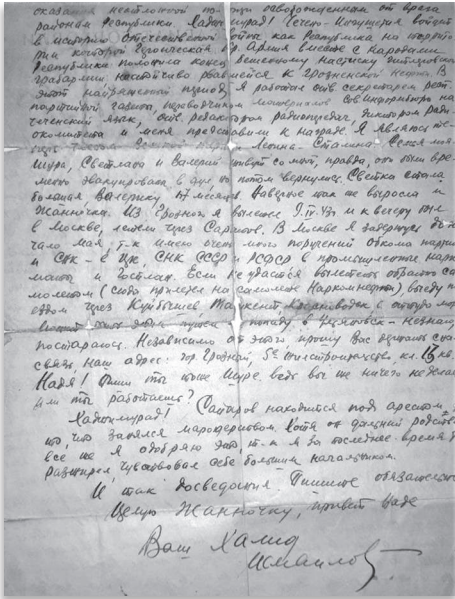 оказания неотложной помощи освобожденным от врага
районам Республики. Хаджимурад! Чечено-Ингушетия войдет
в историю Отечественной войны как Республика на территории
которой героическая Кр. Армия вместе с народами
Республики положила конец бешеному натиску гитлеровской
грабармии настойчиво рвавшейся к Грозненской нефти. В
этот напряженный период я работал отв. секретарем респ.
партийной газеты, переводчиком материалов совинформбюро на
чеченский язык, отв. редактором радиопередач, диктором радио-
комитета и меня представили к награде. Я являюсь
Ленина - Сталина. Семья моя -
Шура, Светлана и Валерий живут со мной, правда, они были вре-
менно эвакуированы, а потом вернулись. Светка стала
большая, Валерику 17 месяцев. Наверное так же выросла и
Жанночка. Из Грозного я вылетел 9.IV.43г и к вечеру был
в Москве, летели через Саратов. В Москве я задержусь до на-
чало мая, т-к имею очень много поручений обкома партии
и СНК - в ЦК, СНК СССР и РСФСР в промышленные нарко-
маты и Госплан. Если не удастся вылететь обратно само-
летом (сюда прилетел на самолете Наркомнефти) выеду по-
ездом через Куйбышев Ташкент, Красноводск и оттуда мор.
попаду в - незнаю,
постараюсь. Независимо от этого, прошу Вас держать сна
связь, наш адрес: гор Грозный, 5е жилстроительство кл. 16 кв.
Надя! Пиши ты тоже Шуре ведь вы же ничего не делаете
или ты работаешь?
Хаджимурад! Саипаров находится под арестом,
то, что занялся мародерством. Хотя он дальний родств.
все же я одобряю это, т-к я до последнее время
разжирел чувствовал себе большим начальником.
И так досведания Пишите обязательно
Целую Жанночку, привет Наде
Ваш Халид
Исмаилов